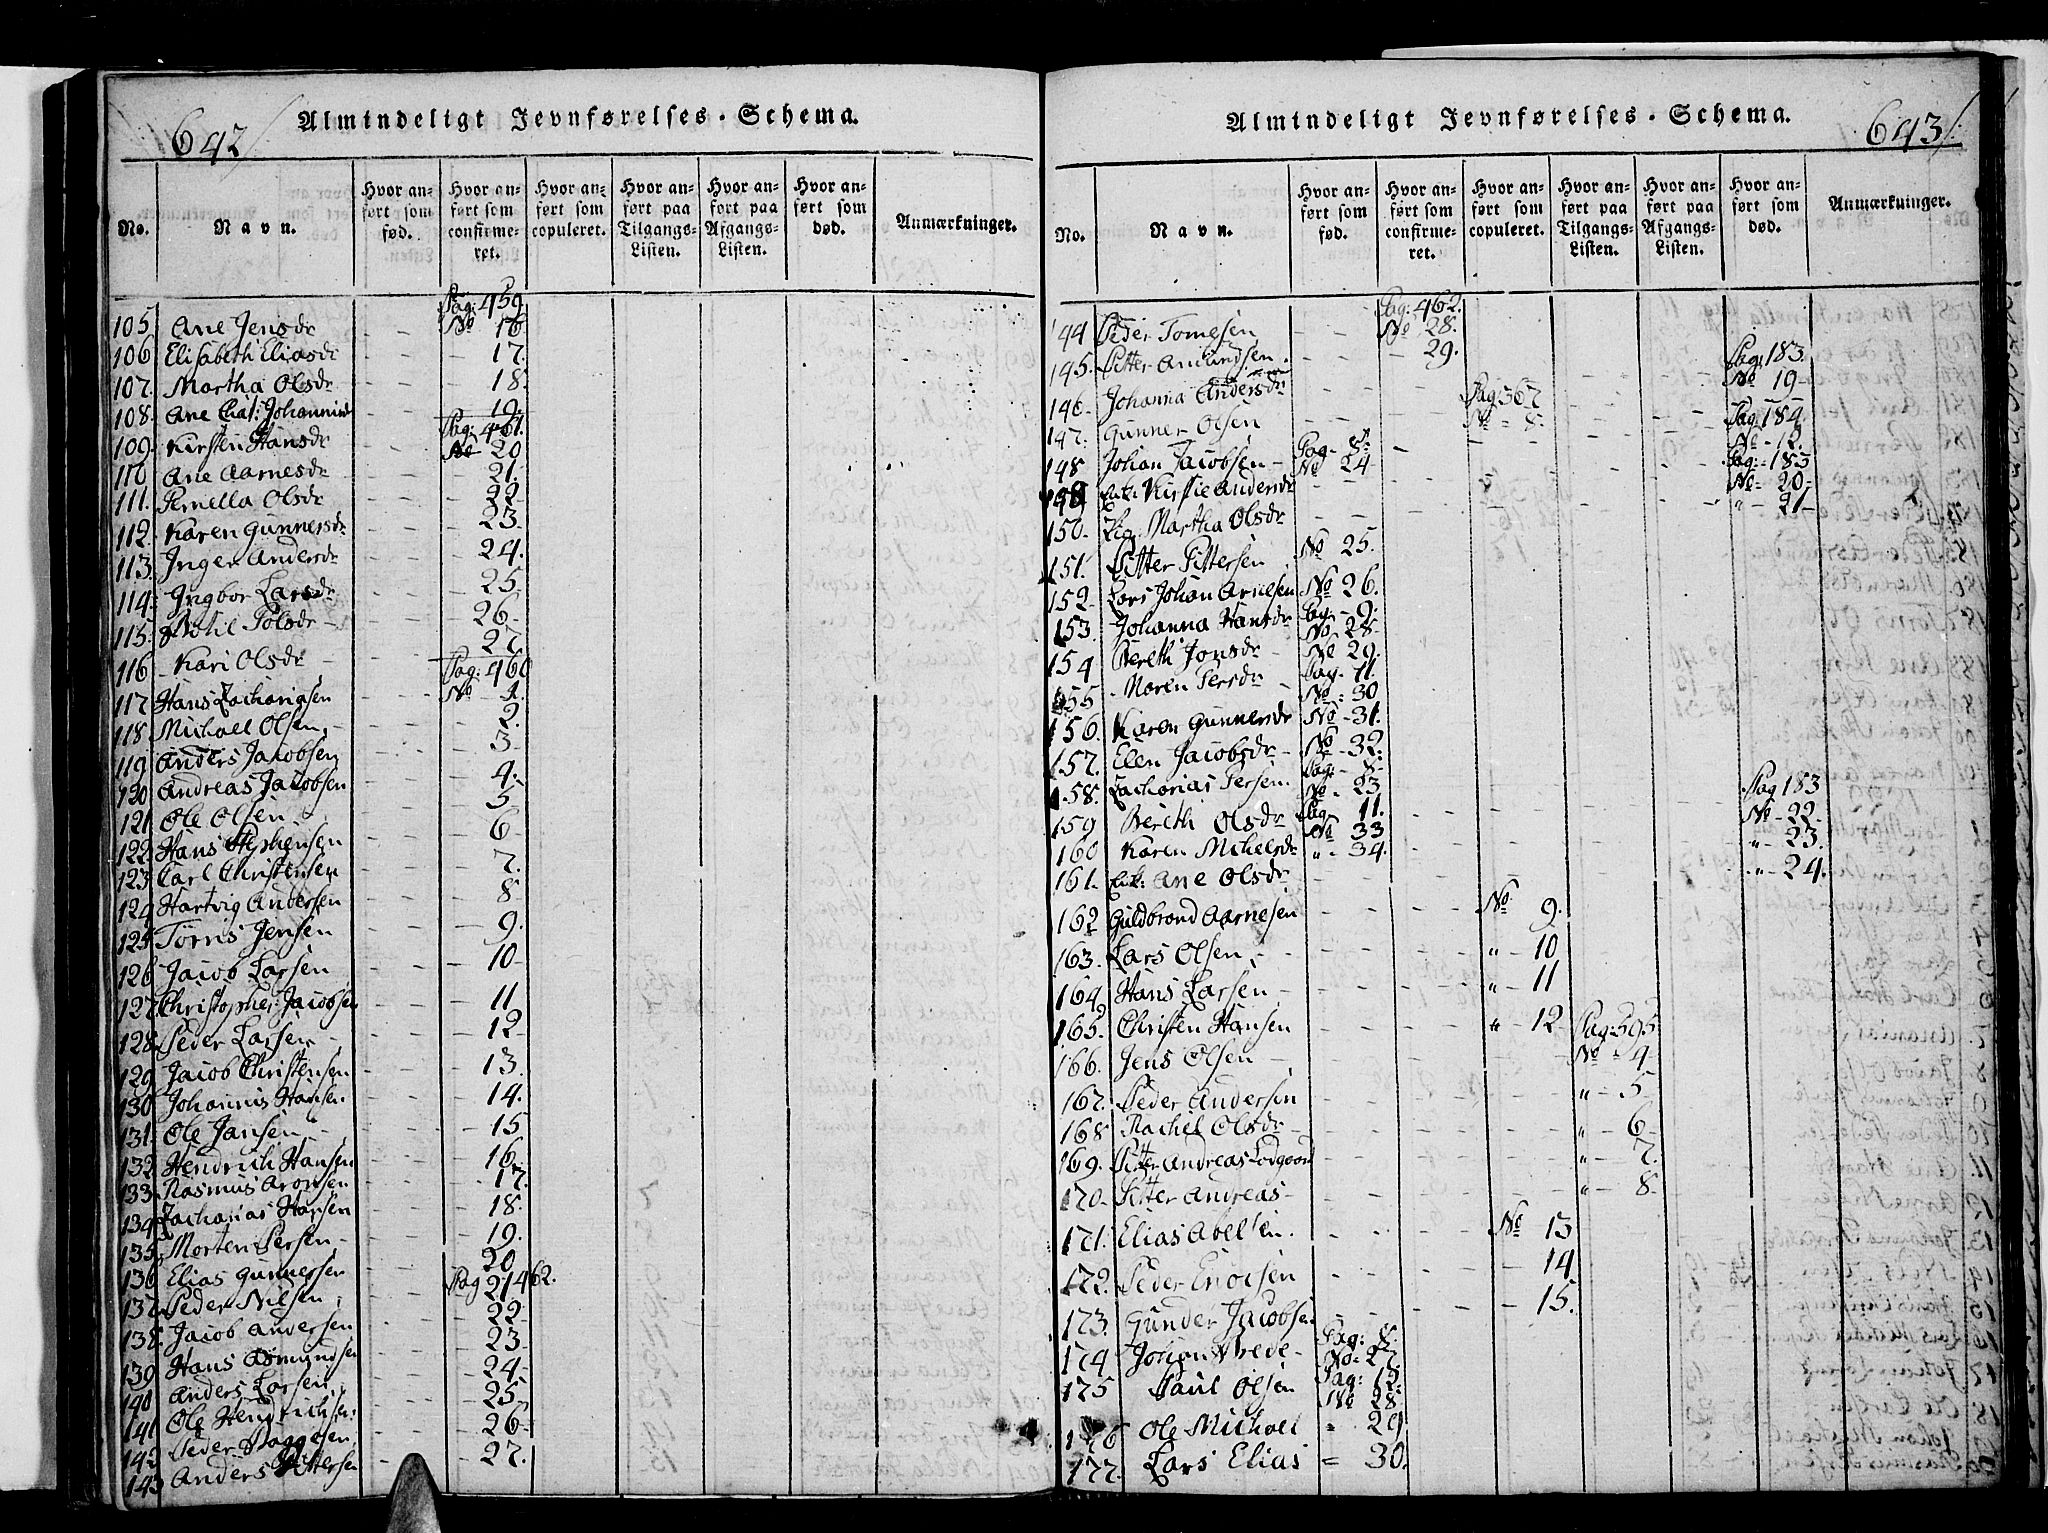 642
Almindeligt Jevnførelses-Schema.
No. Navn. Hvor anført som fød. Hvor anført som confirmeret. Hvor anført som copuleret. Hvor anført paa Tilgangs-Listen. Hvor anført paa Afgangs-Listen. Hvor anført som død. Anmærkninger.
Pag: 459
105. Ane Jensdr - - No 16
106. Elisabeth Eliasdr - - 17.
107. Martha Olsdr - - 18.
108. Ane Chat: Johannisdr - - 19.
Pag: 461.
109. Kirsten Hansdr No 20
110 Ane Aarnesdr - - 21.
111. Pernella Olsdr - - 22
112. Karen Gunnersdr - - 23
113. Inger Andersdr - - 24.
114. Ingbor Larsdr - - 25
115. Bothil Polsdr - - 26
116 Kari Olsdr - - 27
Pag: 460
117 Hans Zachariasen No 1.
118 Michael Olsen - - 2.
119 Anders Jacobsen - - 3
120 Andreas Jacobsen - - 4.
121 Ole Olsen - - 5
122. Hans Stephensen - - 6
123 Carl Christensen - - 7.
124 Hartvig Andersen - - 8
125 Tørris Jensen - - 9.
126 Jacob Larsen - - 10
127. Christopher Jacobsen - - 11.
128 Peder Larsen - - 12
129 Jacob Christensen - - 13.
130 Johannis Hansen - - 14.
131. Ole Jansen - - 15
132 Hendrich Hansen - - 16
133 Rasmus Aronsen - - 17.
134 Zacharias Hansen - - 18.
135. Morten Persen - - 19.
136 Elias Gunnersen - - 20
Pag 462.
137 Peder Nilsen - - 21
138. Jacob Andersen - - 22
139 Hans Asmundsen - - 23
140 Anders Larsen - - 24
141 Ole Hendrichsen - - 25
142 Peder Baggesen - - 26
143 Anders Pittersen - - 27.
Almindeligt Jevnførelses-Schema.
643
No. Navn. Hvor anført som fød. Hvor anført som confirmeret. Hvor anført som copuleret. Hvor anført paa Tilgangs-Listen. Hvor anført paa Afgangs-Listen. Hvor anført som død. Anmærkninger.
Pag: 462.
144 Peder Tomesen - - No 28.
145. Pitter Amundsen - - 29.
Pag: 183.
146. Johanna Andersdr - - No 19
Pag: 367 Pag: 184
147. Gunner Olsen - - No - 8. No - 12.
Pag - 8. Pag: 183
148 Johan Jacobsen No 24 No - 20
149 Enk: Kirstie Andersdr " - 21
150. Pig. Martha Olsdr
151. Pitter Pittersen No 25.
152 Lars Johan Arnesen No 26.
Pag - 9.
153. Johanna Hansdr No 28
154 Bereth Jonsdr No 29.
Pag. 11.
155 Maren Persdr No - 30
156. Karen Gunnersdr No - 31.
157. Elen Jacobsdr No - 32.
Pag - 8
158. Zacharias Persen No - 23 Pag 183
Pag 11.
159 Bereth Olsdr No 33 No - 22
160 Karen Michelsdr " - 34. " - 23.
161. Enk: Ane Olsdr " - 24.
162 Guldbrand Aarnesen No 9.
163. Lars Olsen " - 10
164 Hans Larsen " - 11
165. Christen Hansen " - 12
Pag: 595
166. Jens Olsen No - 4
167. Peder Andersen " - 5
168 Rachel Olsdr " - 6
169. Pitter Andreas Lodgaard " - 7.
170 Pitter Andreas " - 8
171. Elias Abelsen No 13
172. Peder Enocsen - 14
173. Gunder Jacobsen - 15.
Pag: 8.
174 Johan Brede No 27.
Pag: 15
175 Paul Olsen No 28
176 Ole Michael " 29
177. Lars Elias " 30.